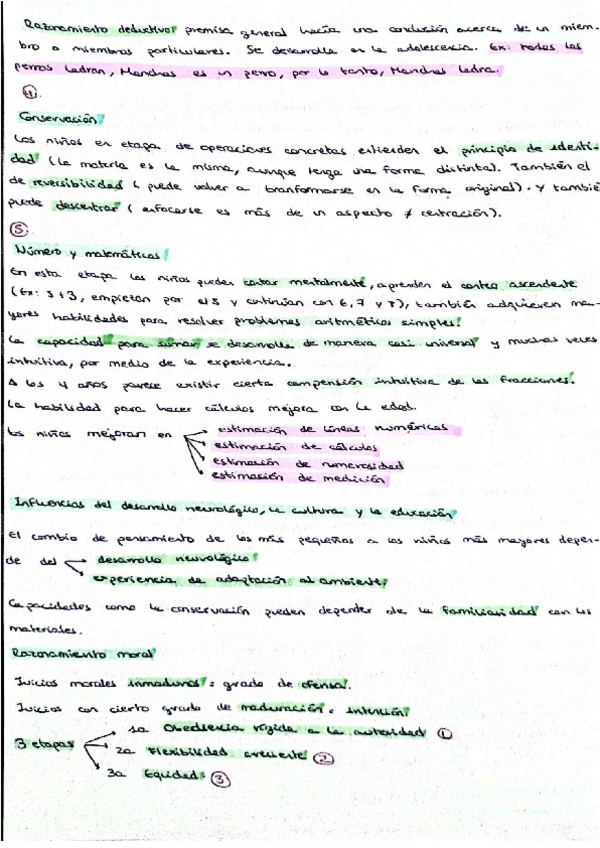 Razonamiento deductivo: premisa general hacia una conclusión acerca de un miem-
bro o miembros particulares. Se desarrolla en la adolescencia. Ex: todos los
perros ladran, Manchas es un perro, por lo tanto, Manchas ladra.
4.
Conservación
Los niños en etapa de operaciones concretas entienden el principio de identi-
dad (la materia es la misma, aunque tenga una forma distinta). También el
de reversibilidad (puede volver a transformarse en la forma original). Y tambié
puede descentrar (enfocarse es más de un aspecto ≠ centración).
5.
Número y matemáticas
En esta etapa los niños pueden contar mentalmente, aprenden el conteo ascendente
(Ex: 5+3, empiezan por el 5 y continúan con 6, 7 y 8), también adquieren ma-
yores habilidades para resolver problemas aritméticos simples.
La capacidad para sumar se desarrolla de manera casi universal y muchas veces
intuitiva, por medio de la experiencia.
A los 4 años parece existir cierta compensión intuitiva de las fracciones.
La habilidad para hacer cálculos mejora con la edad.
Los niños mejoran en
estimación de líneas numéricas
estimación de cálculos
estimación de numerosidad
estimación de medición
Influencias del desarrollo neurológico, la cultura y la educación
El cambio de pensamiento de los más pequeños a los niños más mayores depen-
de del
desarrollo neurológico
experiencia de adaptación al ambiente
Capacidades como la conservación pueden depender de la familiaridad con los
materiales.
Razonamiento moral
Juicios morales inmaduros: grado de ofensa.
Juicios con cierto grado de maduración: intención
3 etapas
1a Obediencia rígida a la autoridad 1
2a Flexibilidad creciente 2
3a Equidad: 3